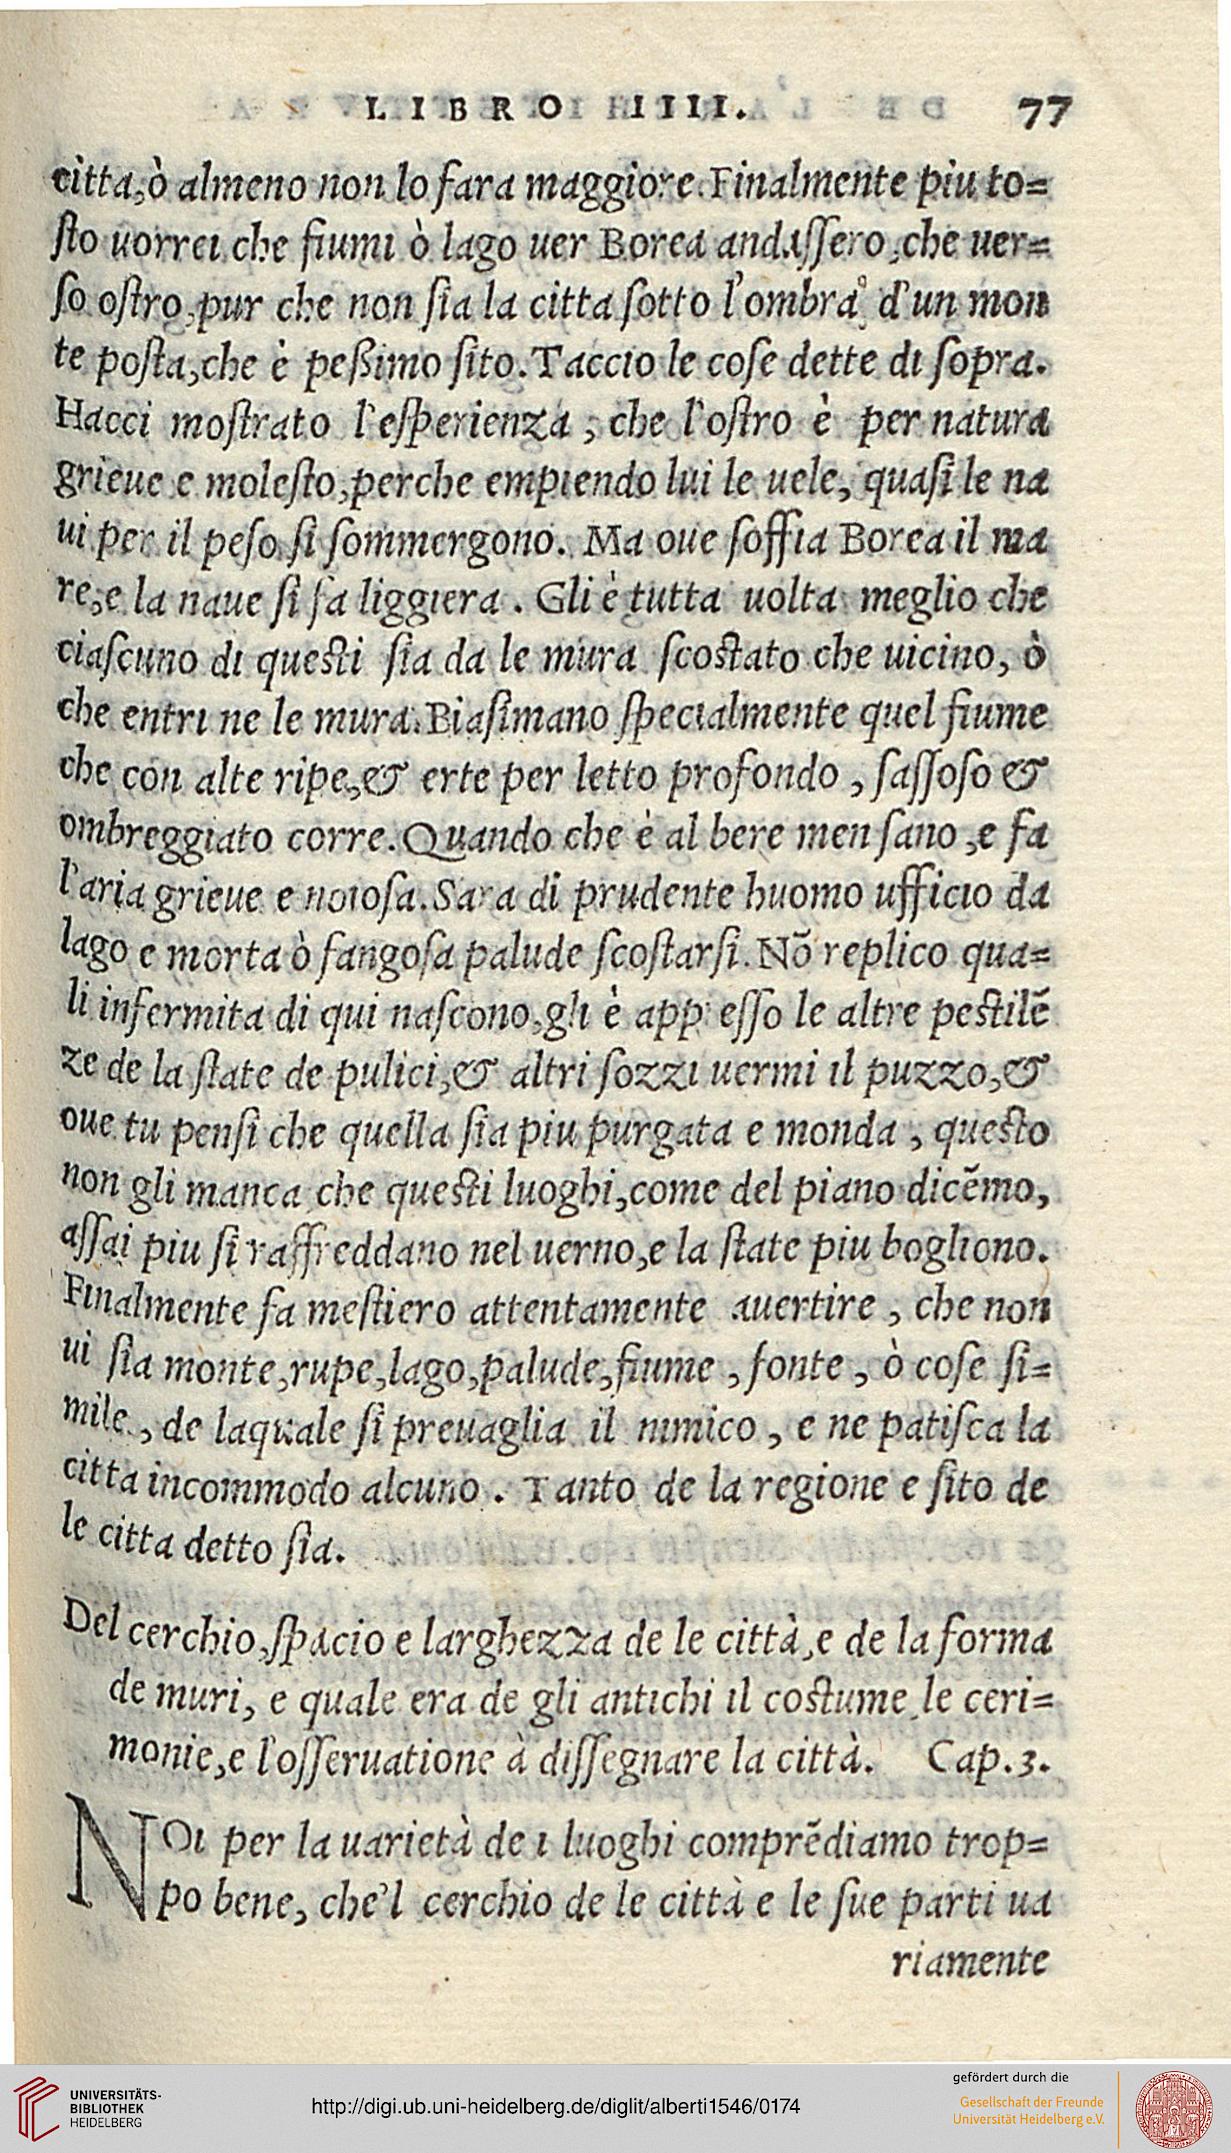 LIBRO IIII. 77
citta,ò almeno non lo fara maggiore.Finalmente piu to=
ſto uorrei che fiumi ò lago uer Borea andaſſero,che uer=
ſo oſtro,pur che non ſia la citta ſotto l'ombra d'un mon
te poſta,che è peßimo ſito.Taccio le coſe dette di ſopra.
Hacci moſtrato l'eſperienza, che l'oſtro è per natura
grieue e moleſto,perche empiendo lui le uele, quaſi le na
ui per il peſo ſi ſommergono. Ma oue ſoffia Borea il ma
re,e la naue ſi fa liggiera. Gli è tutta uolta meglio che
ciaſcuno di queſti ſia da le mura ſcoſtato che uicino, ò
che entri ne le mura.Biaſimano ſpecialmente quel fiume
che con alte ripe,& erte per letto profondo, ſaſſoſo &
ombreggiato corre.Quando che è al bere men ſano,e fa
l'aria grieue e noioſa.Sara di prudente huomo ufficio da
lago e morta ò fangoſa palude ſcoſtarſi.Nõ replico qua=
li infermita di qui naſcono,gli è appreſſo le altre peſtilẽ
ze de la ſtate de pulici,& altri ſozzi uermi il puzzo,&
oue tu penſi che quella ſia piu purgata e monda, queſto
non gli manca che queſti luoghi,come del piano dicẽmo,
aſſai piu ſi raffreddano nel uerno,e la ſtate piu bogliono.
Finalmente fa meſtiero attentamente auertire, che non
ui ſia monte,rupe,lago,palude,fiume, fonte, ò coſe ſi=
mile, de laquale ſi preuaglia il nimico, e ne patiſca la
citta incommodo alcuno. Tanto de la regione e ſito de
le citta detto ſia.
Del cerchio,ſpacio e larghezza de le città,e de la forma
de muri, e quale era de gli antichi il coſtume,le ceri=
monie,e l'oſſeruatione à diſſegnare la città. Cap.3.
NOi per la uarietà de i luoghi comprẽdiamo trop=
po bene, che'l cerchio de le città e le ſue parti ua
riamente
UNIVERSITÄTS-
BIBLIOTHEK
HEIDELBERG
http://digi.ub.uni-heidelberg.de/diglit/alberti1546/0174
gefördert durch die
Gesellschaft der Freunde
Universität Heidelberg e.V.